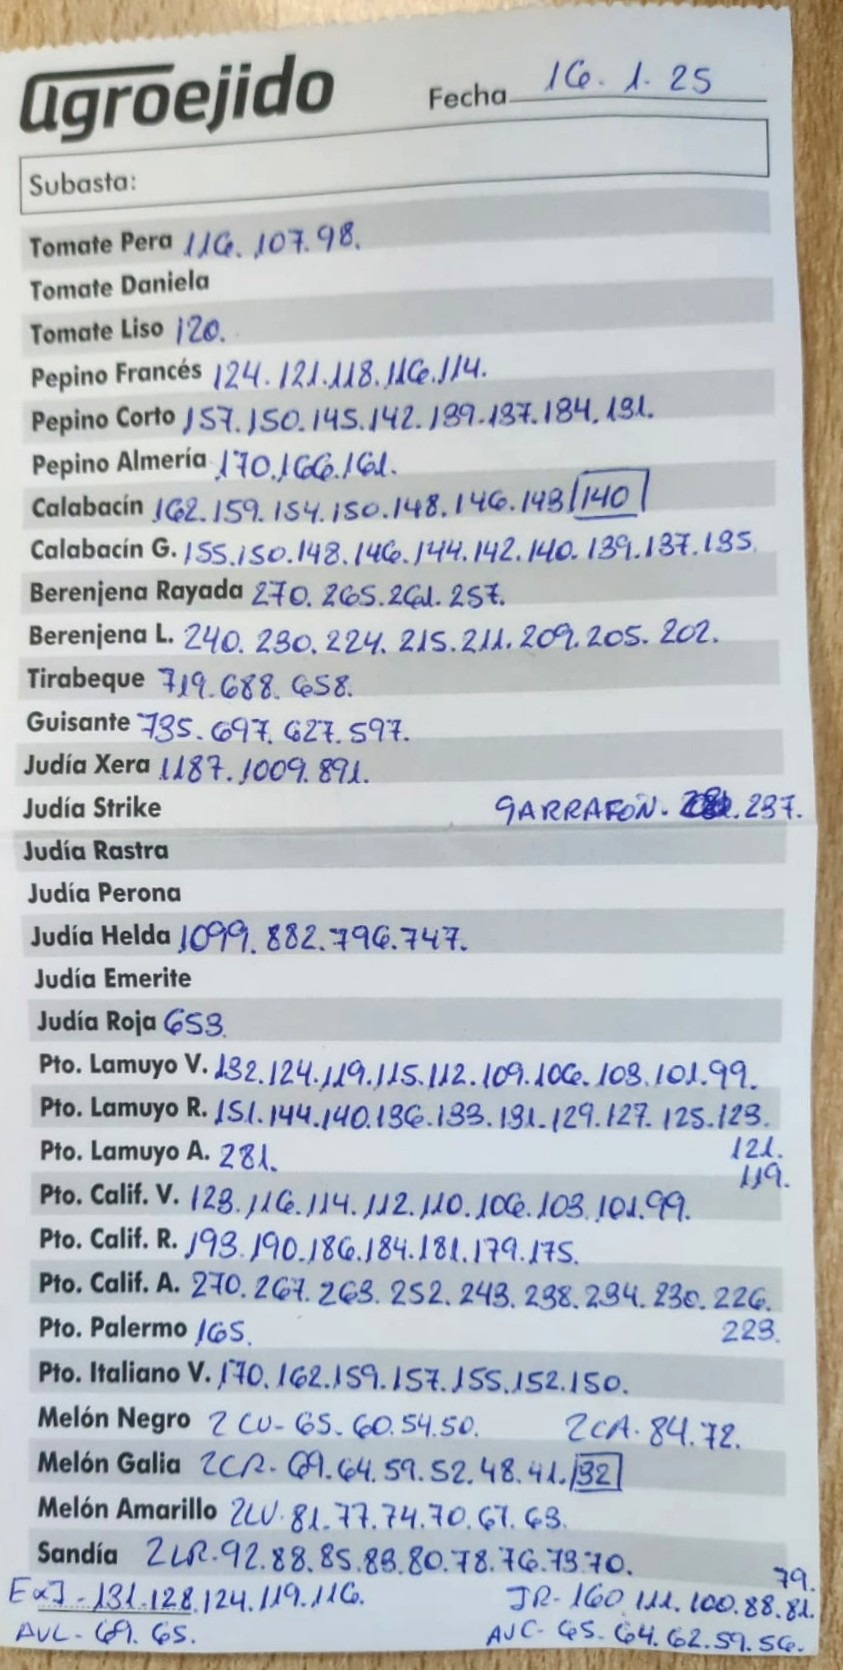 agroejido Fecha 16. 1. 25
Subasta:
Tomate Pera 116. 107. 98.
Tomate Daniela
Tomate Liso 120.
Pepino Francés 124. 121. 118. 116. 114.
Pepino Corto 157. 150. 145. 142. 139. 137. 134. 131.
Pepino Almería 170. 166. 161.
Calabacín 162. 159. 154. 150. 148. 146. 143 140
Calabacín G. 155. 150. 148. 146. 144. 142. 140. 139. 137. 135.
Berenjena Rayada 270. 265. 261. 257.
Berenjena L. 240. 230. 224. 215. 211. 209. 205. 202.
Tirabeque 719. 688. 658.
Guisante 735. 697. 627. 597.
Judía Xera 1187. 1009. 891.
Judía Strike GARRAFÓN. 237.
Judía Rastra
Judía Perona
Judía Helda 1099. 882. 796. 747.
Judía Emerite
Judía Roja 653
Pto. Lamuyo V. 132. 124. 119. 115. 112. 109. 106. 103. 101. 99.
Pto. Lamuyo R. 151. 144. 140. 136. 133. 131. 129. 127. 125. 123.
Pto. Lamuyo A. 281. 121.
119.
Pto. Calif. V. 123. 116. 114. 112. 110. 106. 103. 101. 99.
Pto. Calif. R. 193. 190. 186. 184. 181. 179. 175.
Pto. Calif. A. 270. 267. 263. 252. 243. 238. 234. 230. 226.
Pto. Palermo 165. 223.
Pto. Italiano V. 170. 162. 159. 157. 155. 152. 150.
Melón Negro 2 CU- 65. 60. 54. 50. 2CA. 84. 72.
Melón Galia 2CR- 69. 64. 59. 52. 48. 41. 32
Melón Amarillo 2LV. 81. 77. 74. 70. 67. 63.
Sandía 2LR. 92. 88. 85. 83. 80. 78. 76. 73. 70.
79.
131. 128. 124. 119. 116. JR- 160 111. 100. 88. 81.
AVL- 69. 65. AJC- 65. 64. 62. 59. 56.